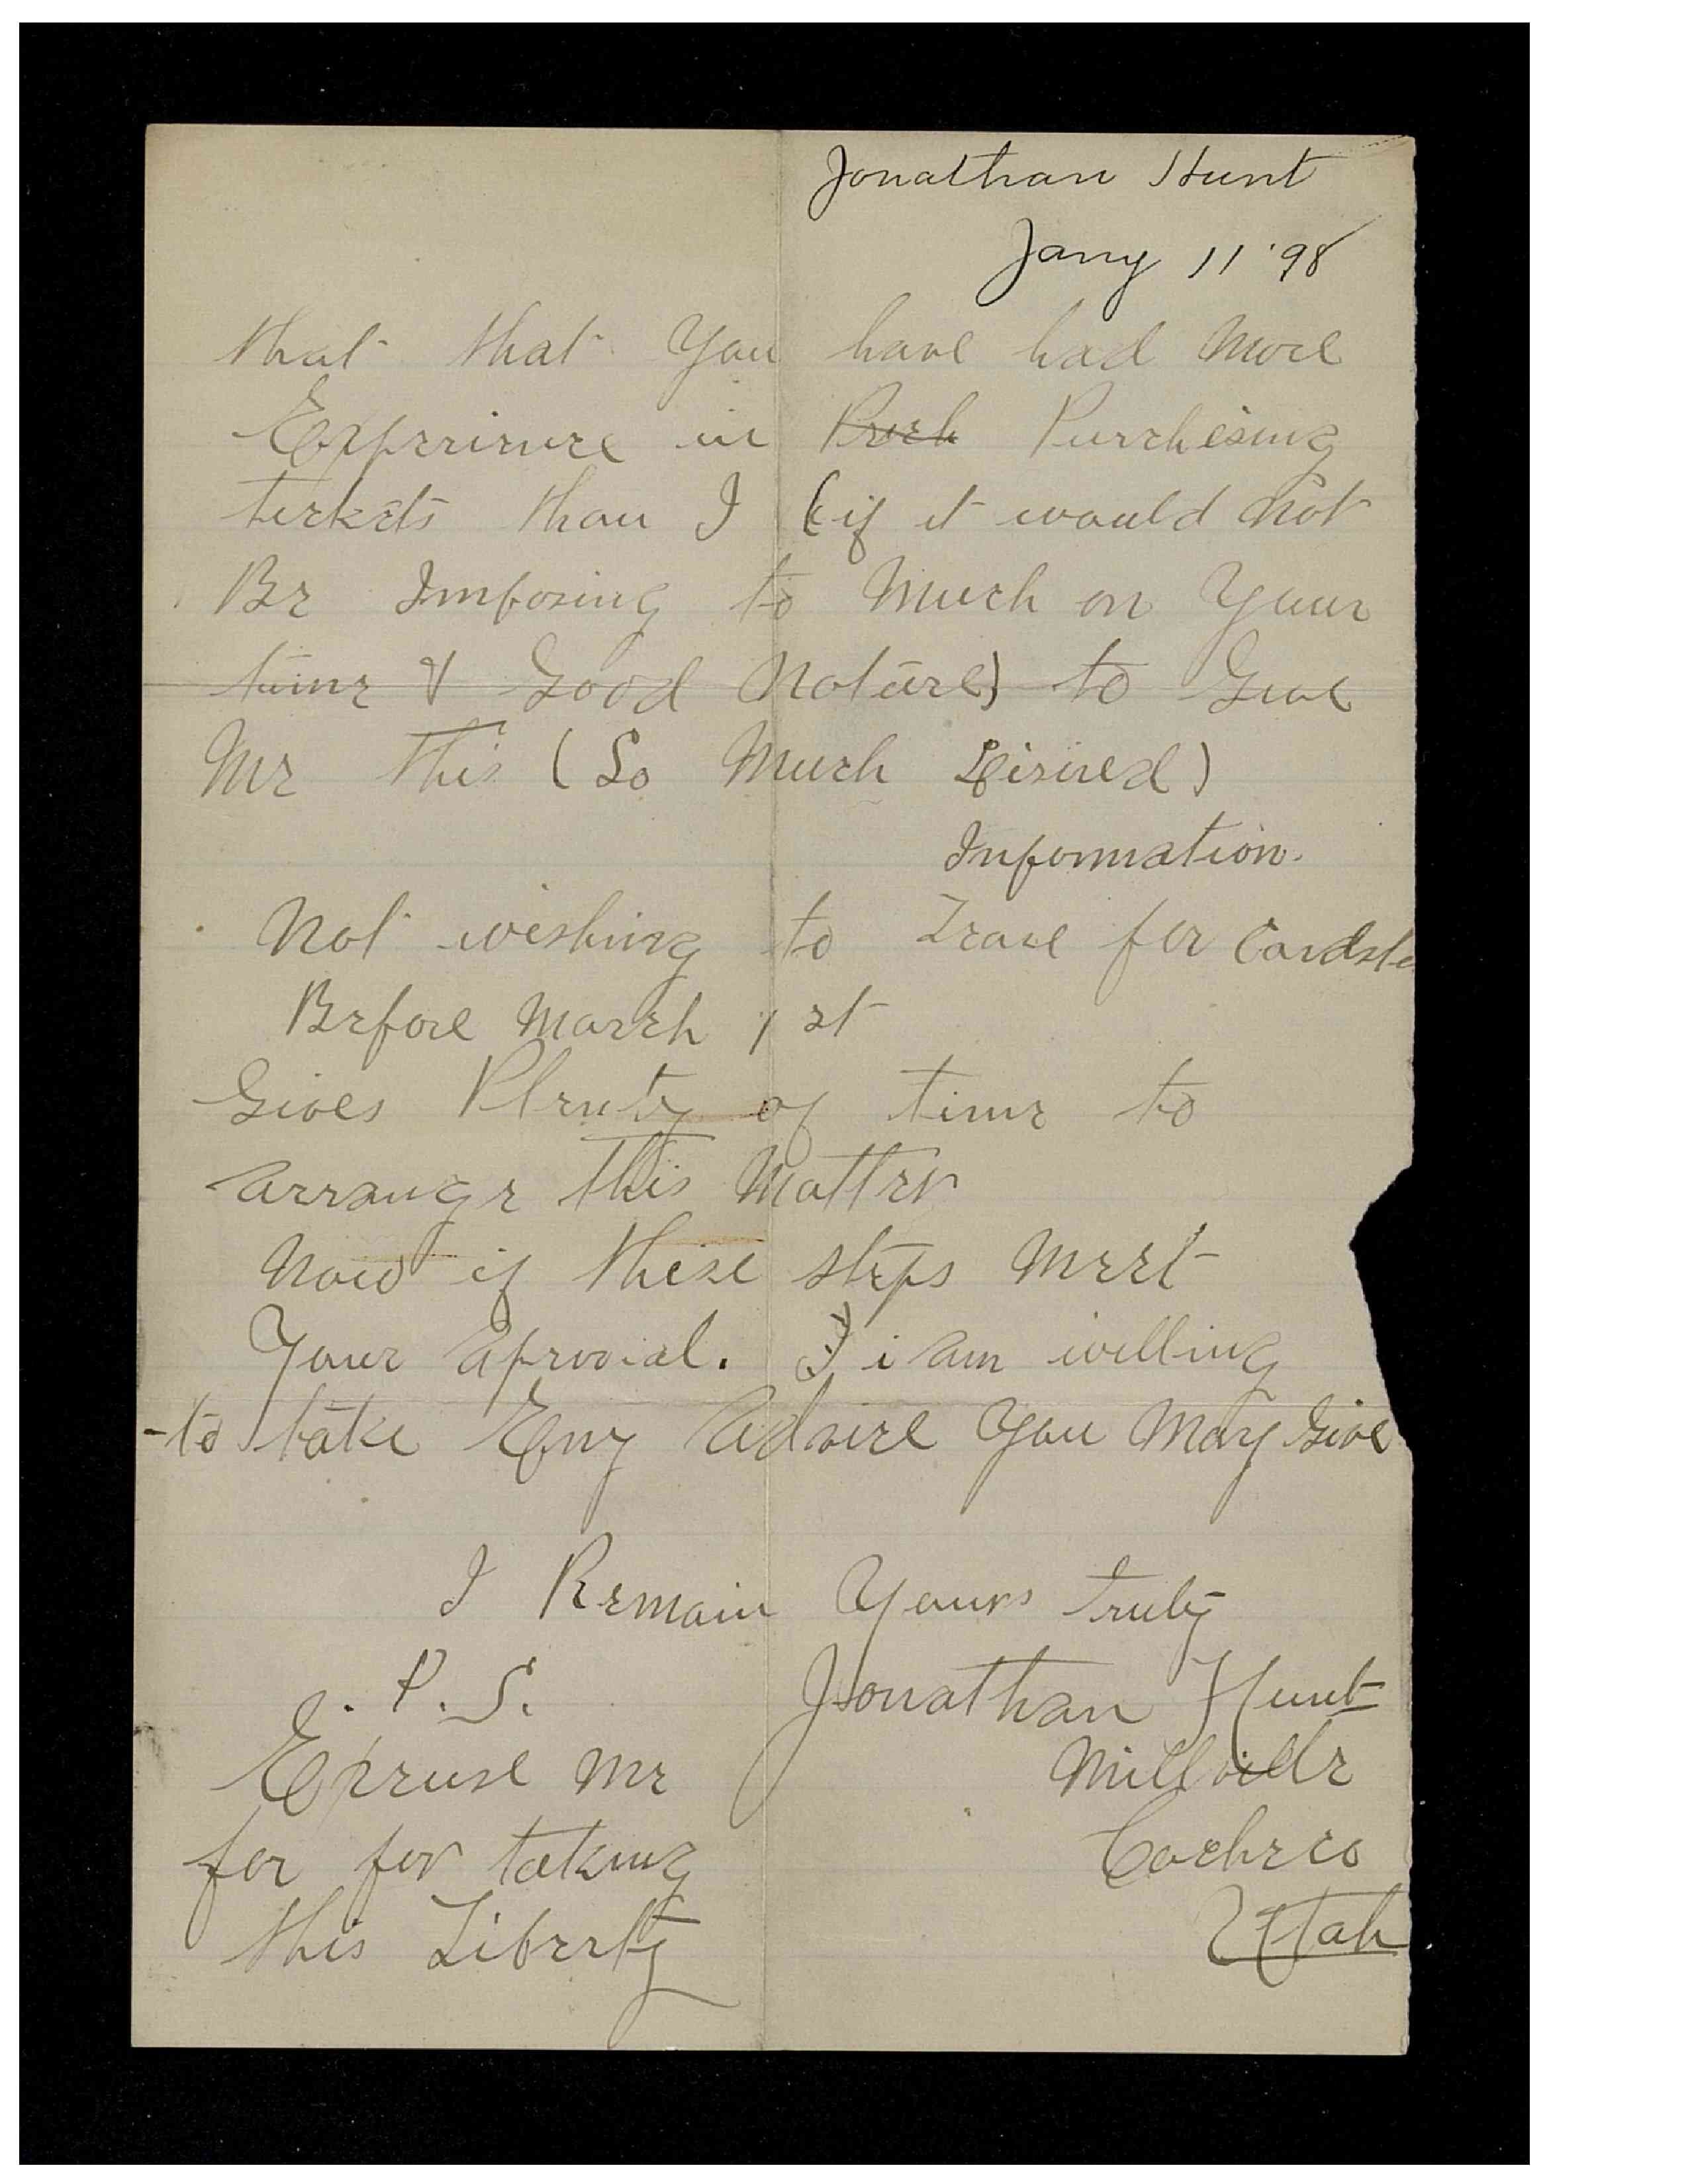 Jonathan Hunt
Jany 11 '98
that that You have had More
Experience in Purch Purchesing
tickets than I (if it would Not
Be Imposing to Much on Your
time & Good Nature) to Give
Me this (So Much Desired)
Information.
Not wishing to Leave for Cardsto
Before March 1st
Gives Plenty of time to
arrange this Matter
Now if these steps Meet
Your aproval. I i am willing
-to take Eny Advice You May Give
I Remain Yours truly
P.S. Jonathan Hunt
Excuse Me Millville
for for taking Cache co
this Liberty Utah